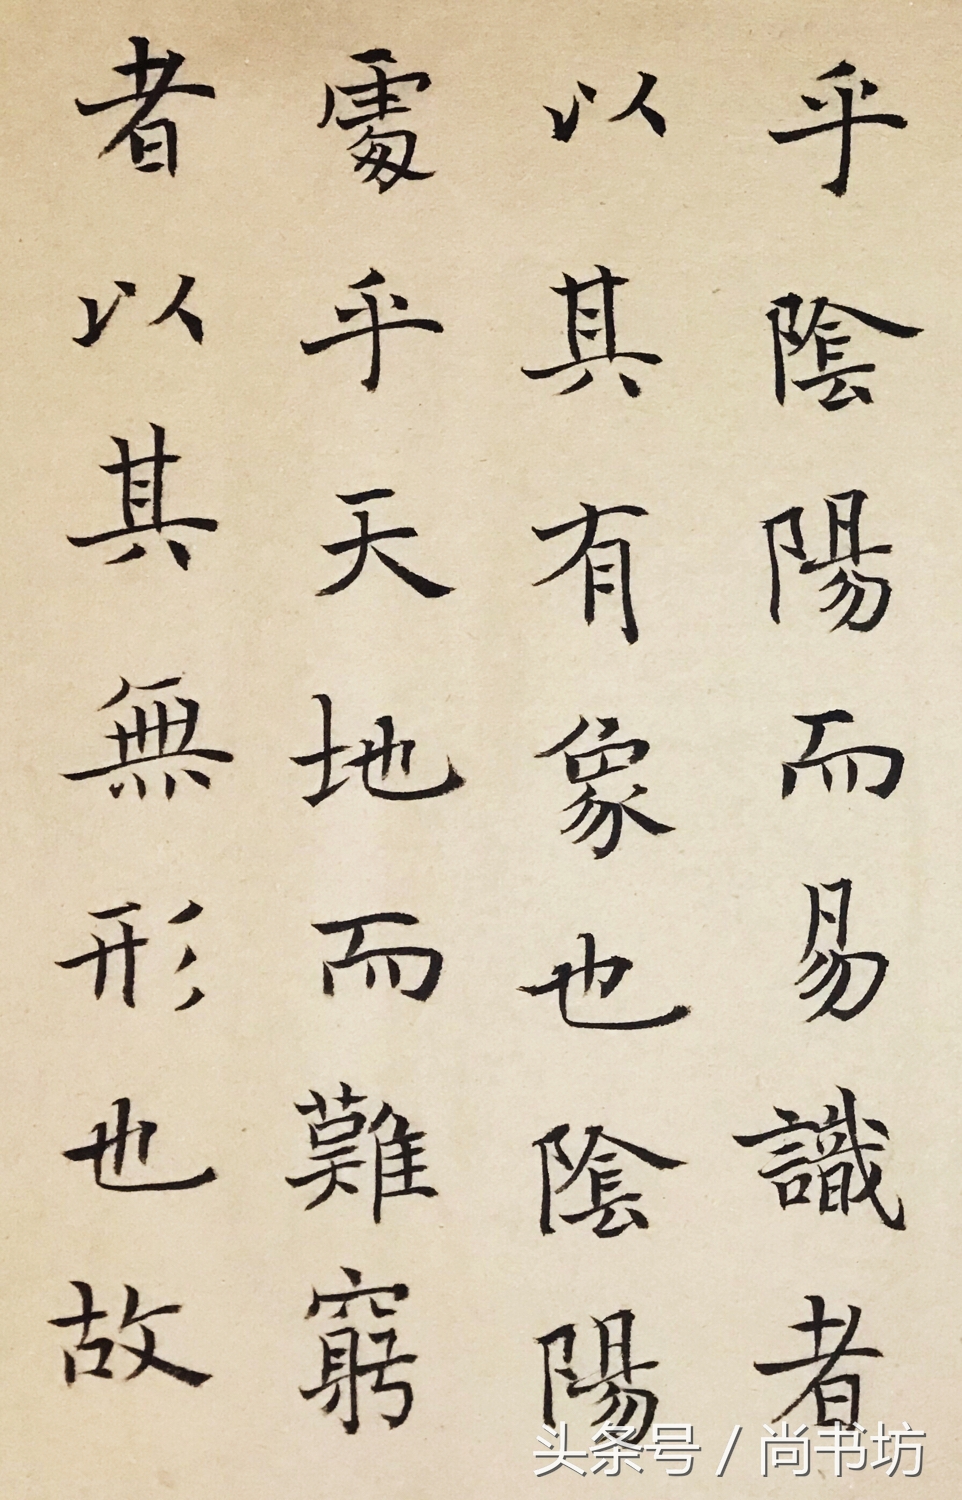 乎陰陽而易識者
以其有象也陰陽
處乎天地而難窮
者以其無形也故
头条号 / 尚书坊